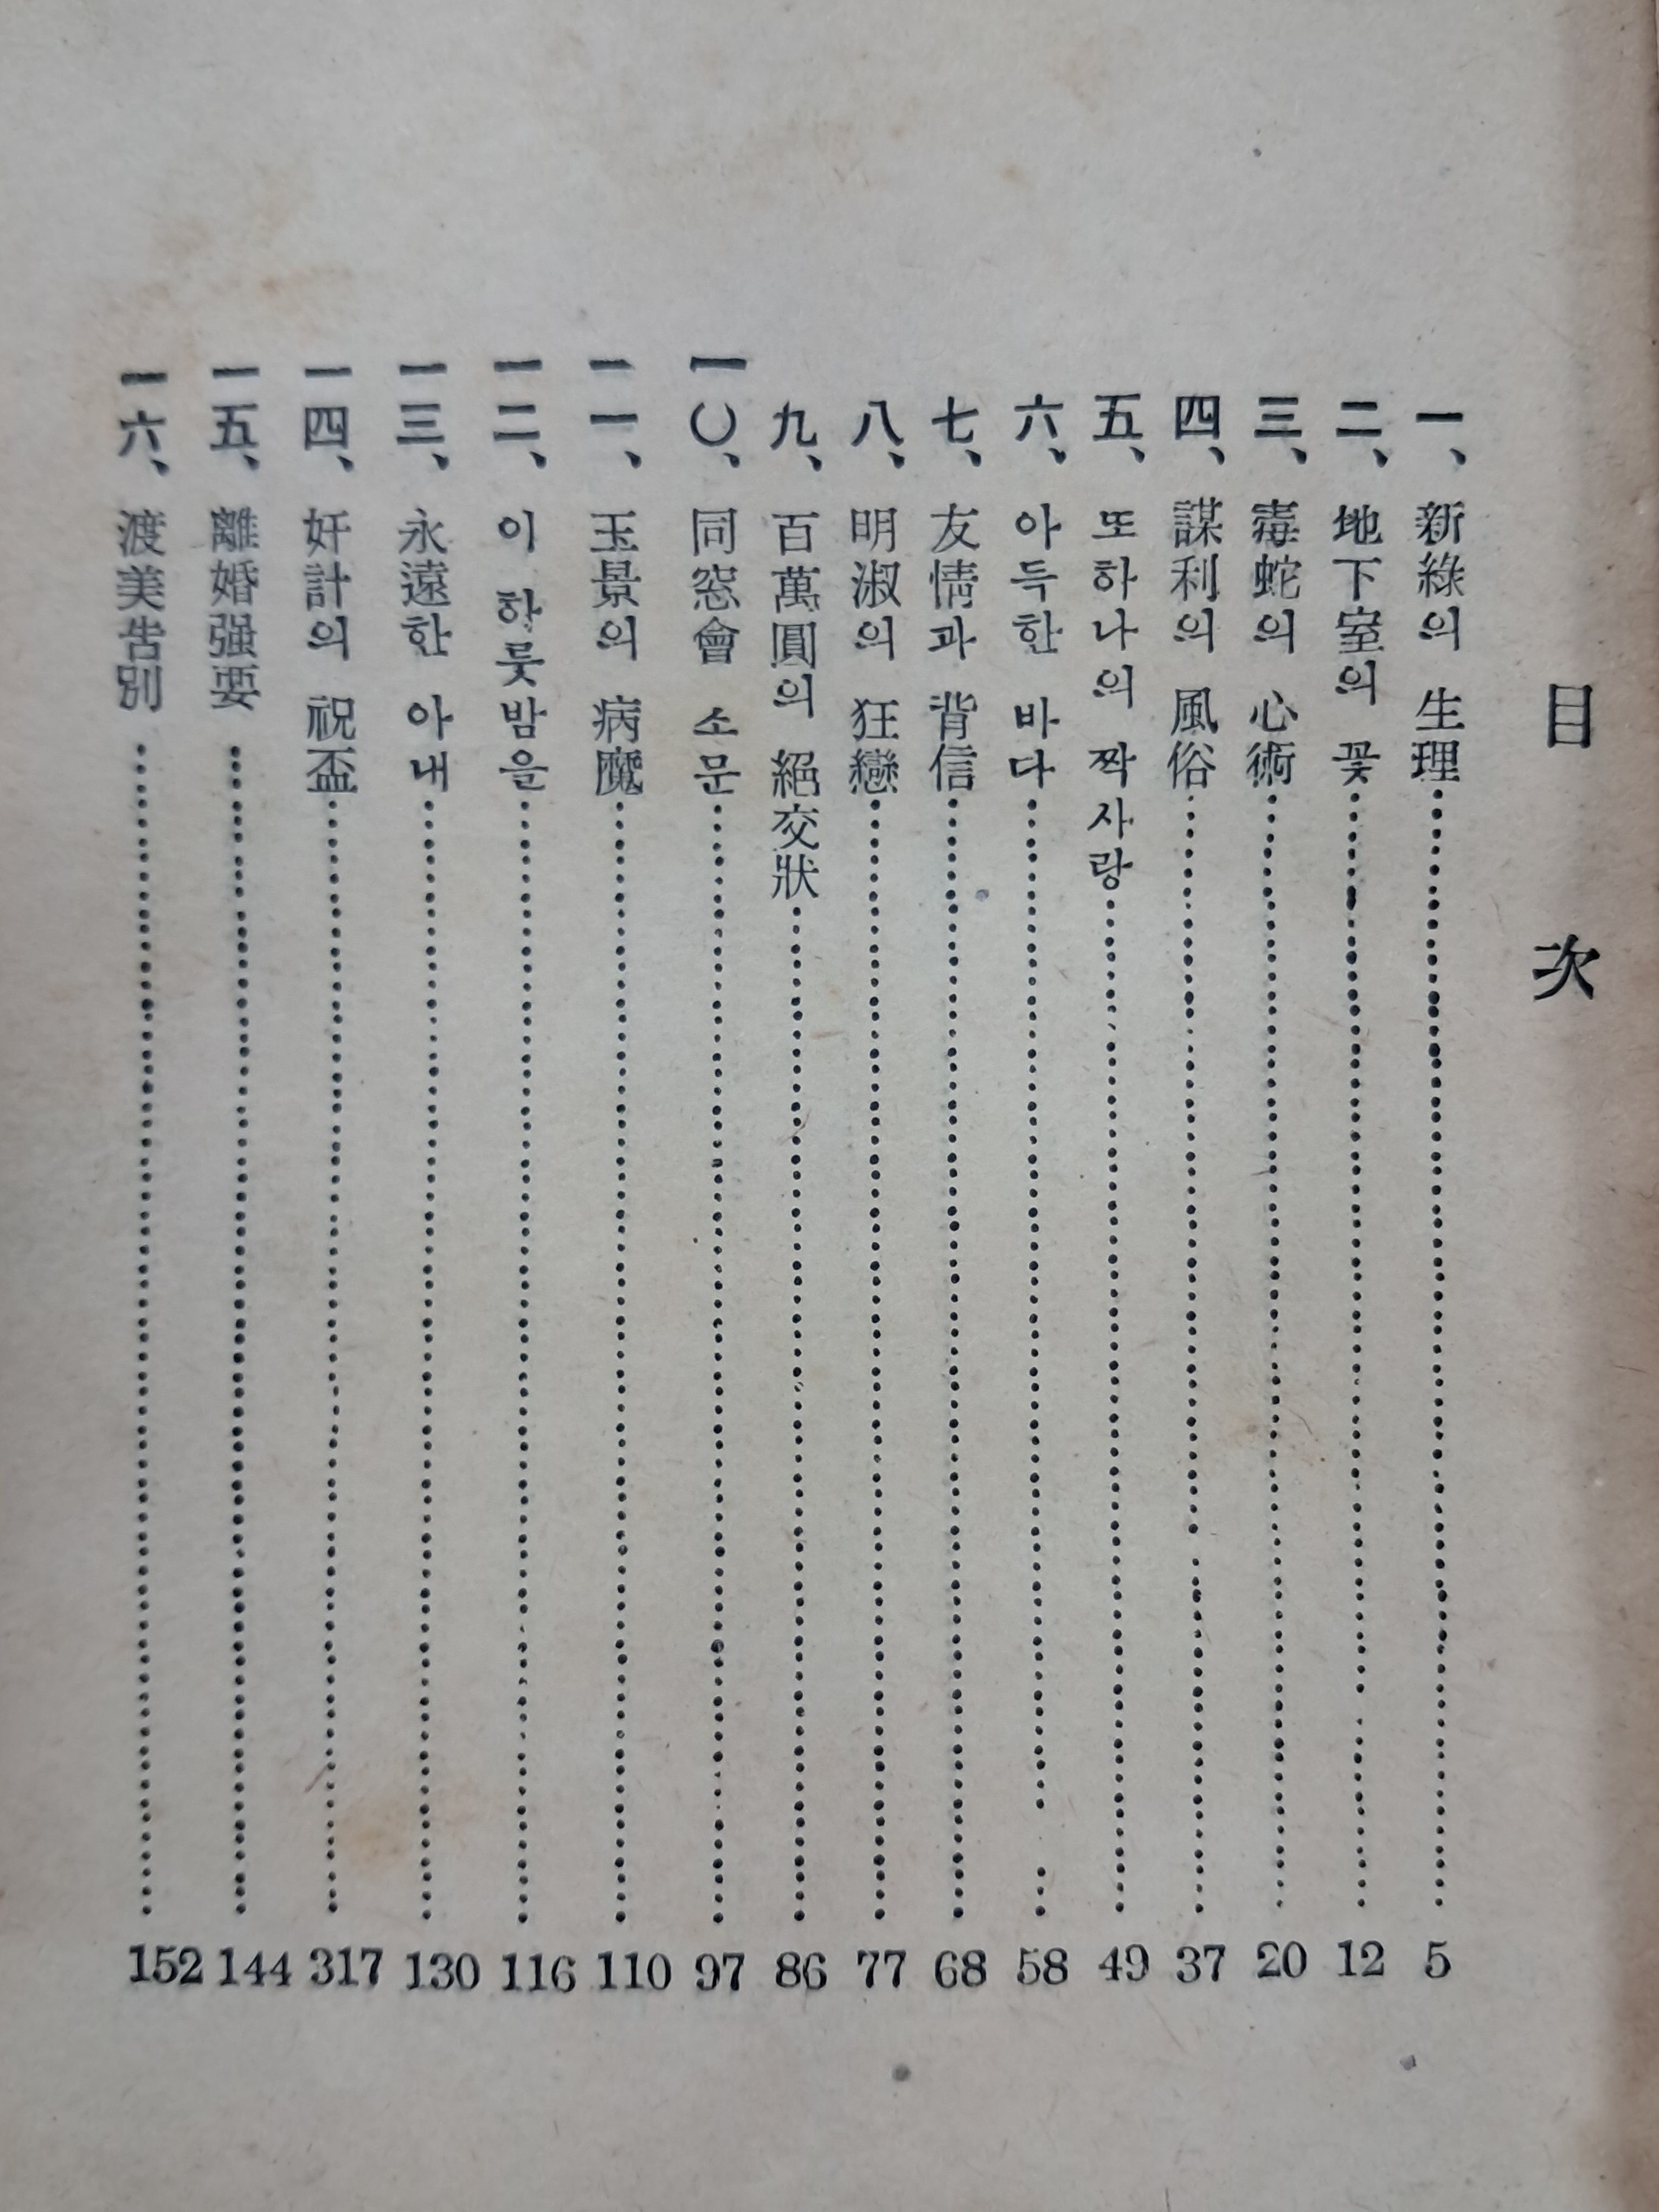 目次
一、新綠의 生理 5
二、地下室의 꽃 12
三、毒蛇의 心術 20
四、謀利의 風俗 37
五、또하나의 짝사랑 49
六、아득한 바다 58
七、友情과 背信 68
八、明淑의 狂戀 77
九、百萬圓의 絕交狀 86
一〇、同窓會 소문 97
一一、玉景의 病魔 110
一二、이 하룻밤을 116
一三、永遠한 아내 130
一四、奸計의 祝盃 317
一五、離婚强要 144
一六、渡美告別 152